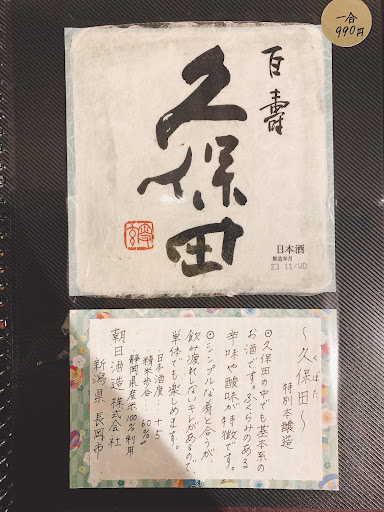 一合
990円
百寿
久保田
日本酒
製造年月
23.11/WD
くぼた
～久保田～
特別本醸造
◎久保田の中でも基本系の
お酒です。ふくらみのある
辛味や酸味が特徴です。
◎シンプルな肴と合うが、
飲み疲れしないキレがあるので、
単体でも楽しめます。
日本酒度:+5
精米歩合:60%
静岡県産米100%利用
朝日酒造株式会社
新潟県長岡市